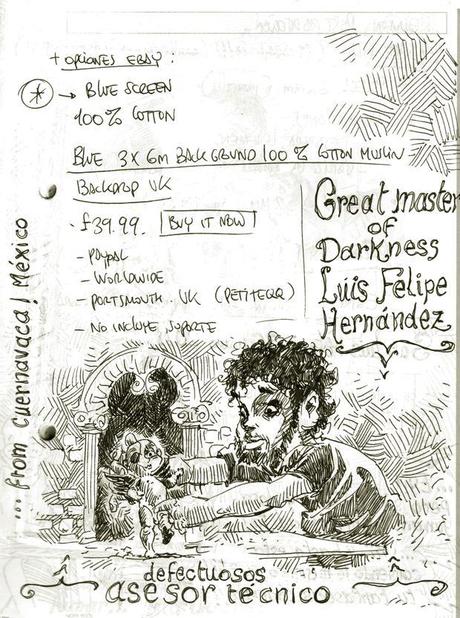 + opciones ebay :
* → BLUE SCREEN
100% COTTON
BLUE 3 x 6m BACKGROUND 100% COTTON MUSLIN
BACKDROP UK
- £39.99. BUY IT NOW
- PAYPAL
- WORLDWIDE
- PORTSMOUTH. UK
- NO INCLUYE SOPORTE
Great master
of
Darkness
Luis Felipe
Hernández
... from Cuernavaca! México
defectuosos
asesor tecnico